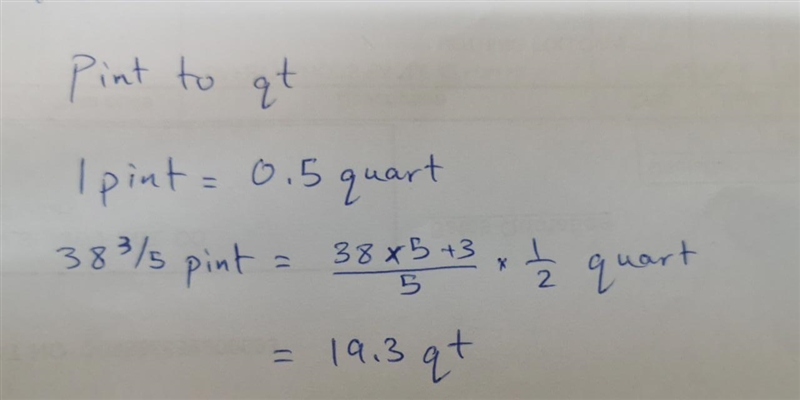 Pint to qt
1 pint = 0.5 quart
38 3/5 pint = (38 × 5 + 3)/5 × 1/2 quart
= 19.3 qt